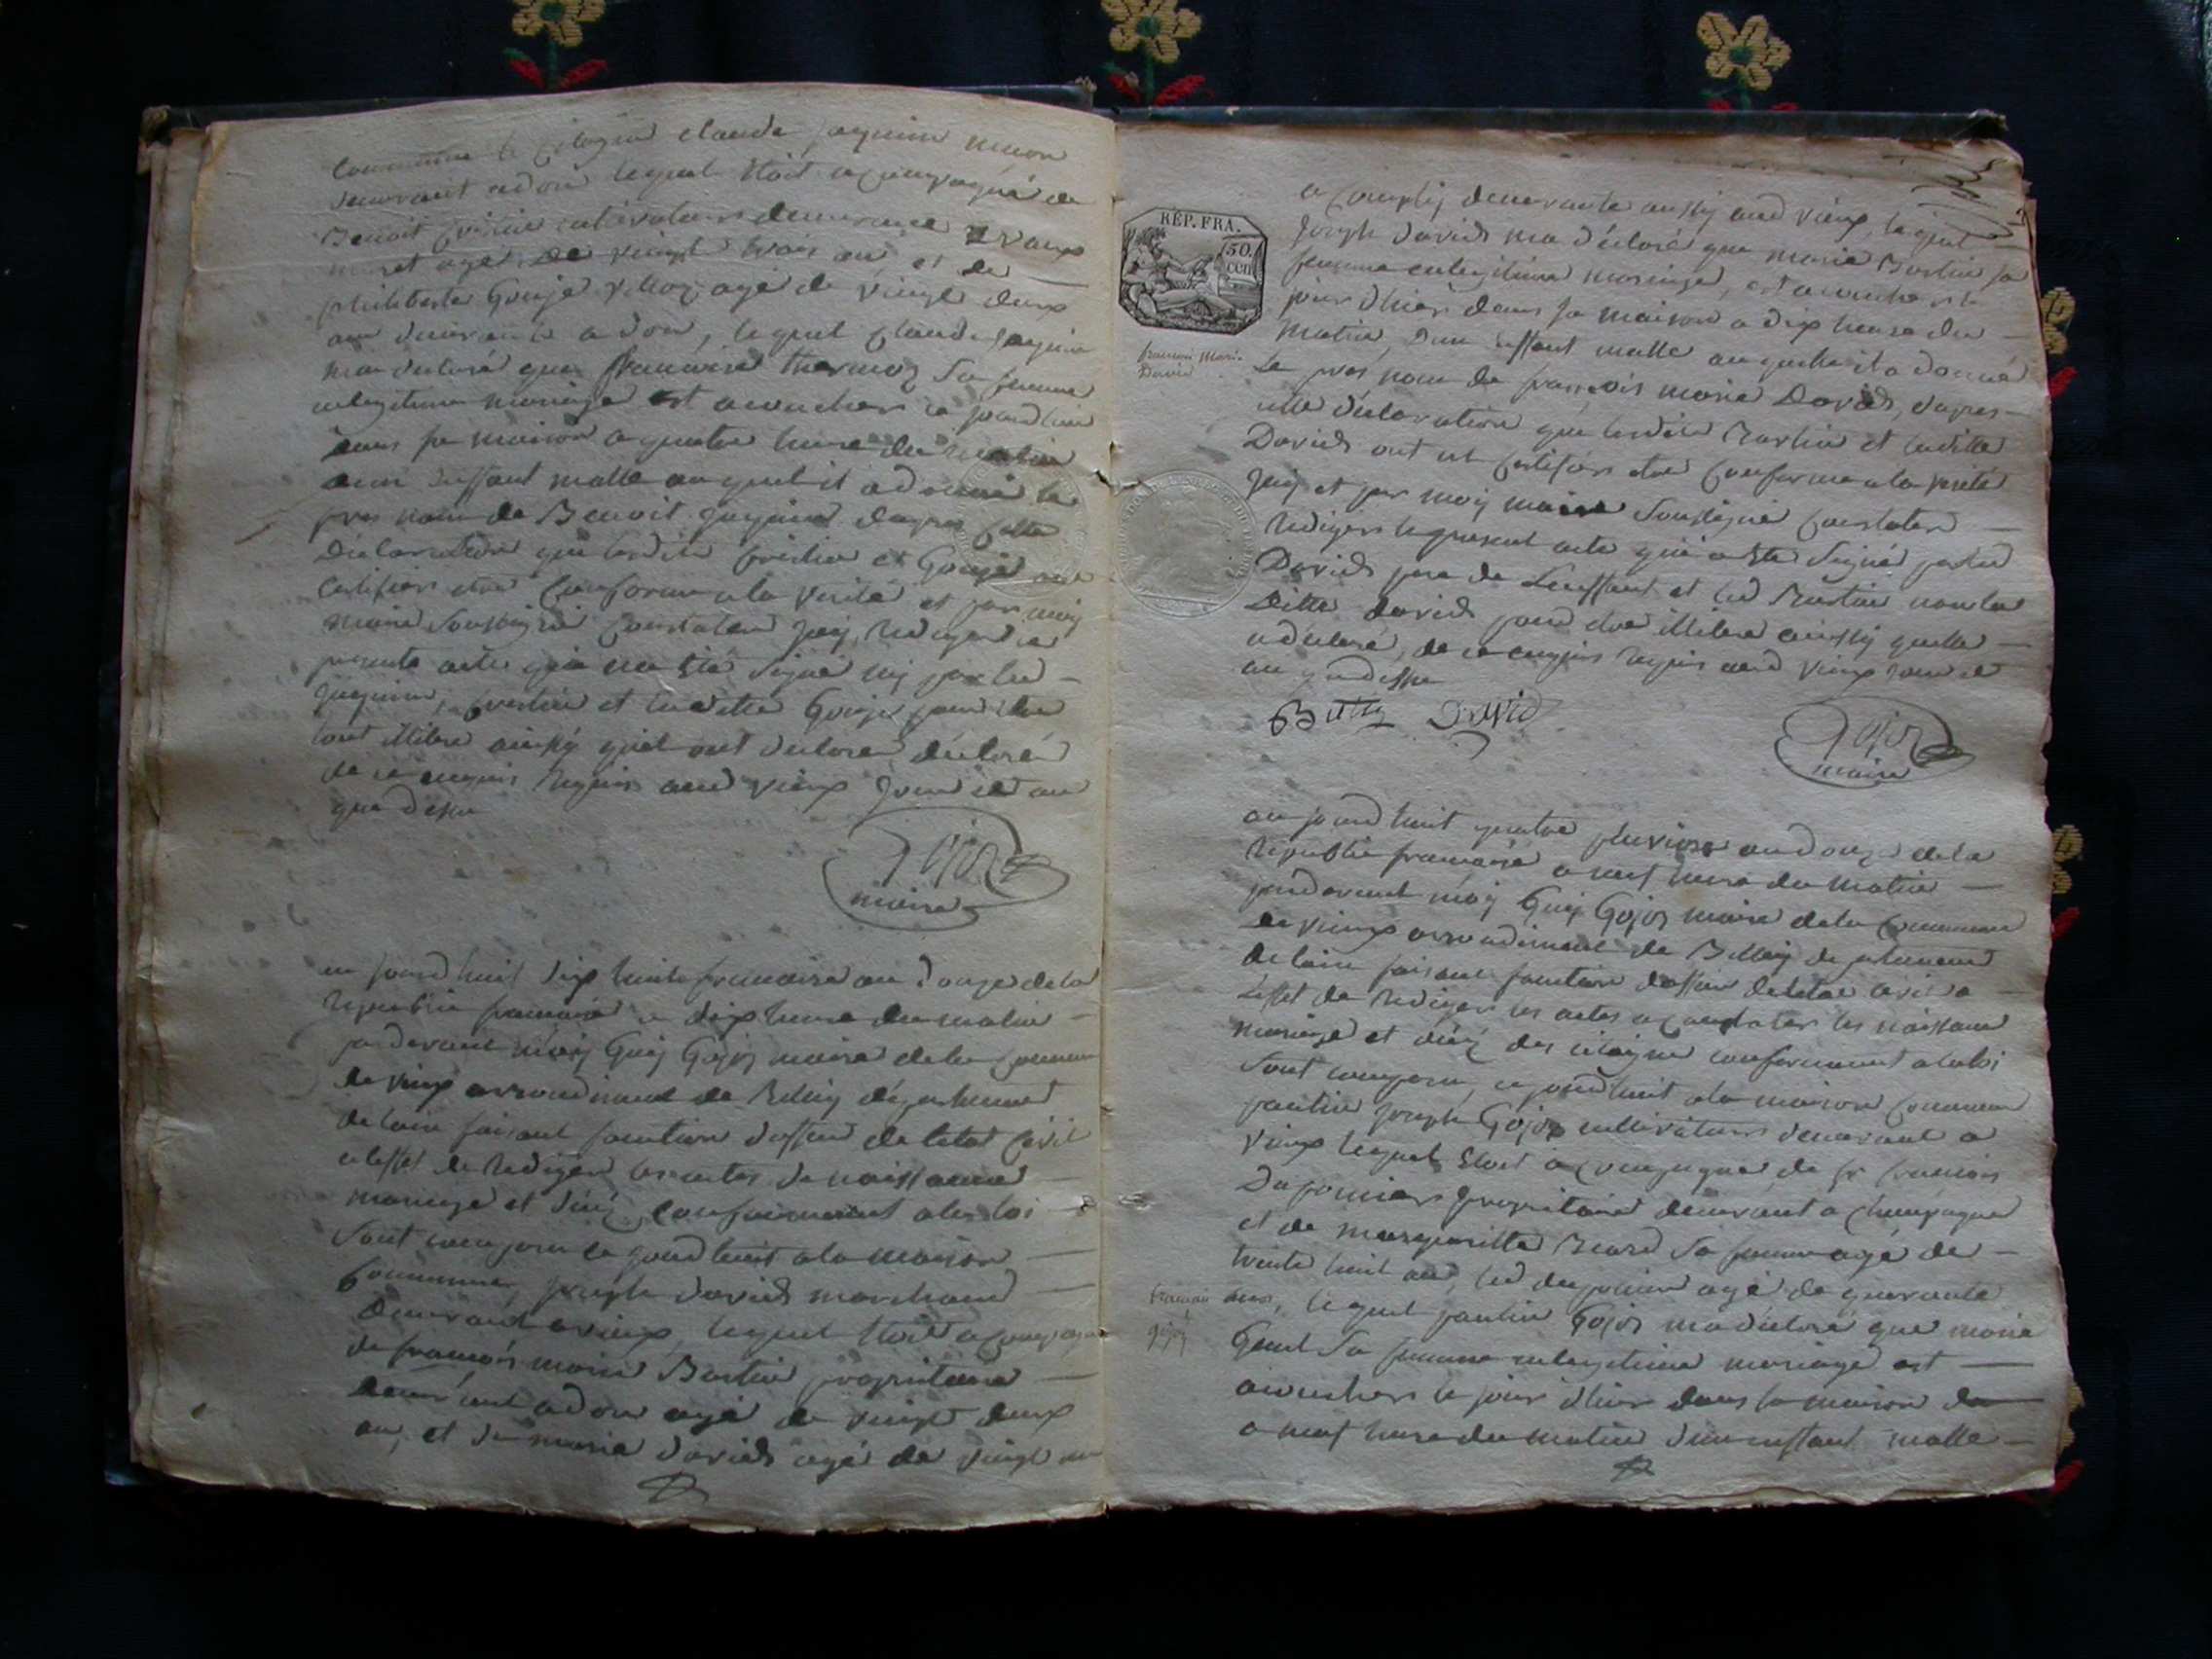 Commune le citoyen claude juquine
demeurant a don lequel etoit acompagné de
Benoit cultivateur demeurant
agé de vingt trois an et de
philiberte agé de vingt deux
an demeurante a don, lequel claude juquine
ma declaré que francoise thermoz sa femme
en legitime mariage est acoucher ce jourdhui
dans sa maison a quatre heure du matin
dun enffant malle auquel il a donné le
pres nom de Benoit juquine dapres cette
Declaration que lesdits et
certifier etre conforme a la verité et par moy
maire soussigné constater jay rediger le
presente acte qui na eté signé ny par led
juquine, et laditte pour etre
tout illitere ainssy quil ont declaré
de ce enquis requis aud vieux jour et an
que dessu
Gojoz
maire
au jourdhuit dix huit frimaire an douze de la
republie francaise a dix heure du matin
par devant moy Guy Gojoz maire de la commune
de vieux arrondiment de Belley département
de lain faisant fonction dofficier de letat civil
a leffet de rediger les actes de naissance
mariage et décé conformement a la loi
sont comparu ce jourdhuit a la maison
Commune, joseph david marchand
demeurant a vieux, lequel etoit acompagné
de francois marie Burtin propriétaire
demeurant a don agé de vingt deux
an, et de marie david agé de vingt
acomplij demeurante aussy aud vieux, lequel
joseph david ma déclaré que marie Burtin sa
femme en legitime mariage, est acouchée le
jour dhier dans sa maison a dix heure du
matin, dun enffant malle auquelle il a donné
Le pres nom de francois marie David, dapres
cette déclaration que lesdits Burtin et laditte
David ont certifier etre conforme a la verité
jay et par moy maire soussigné constater
rediger le present acte qui a eté signé par led
David pere de Lenffant et led Burtin non la
Ditte david pour etre illitere ainssy quelle
a déclaré, de ce enquis requis aud vieux jour et
an que dessu
RÉP. FRA.
50.
CEN
francois Marie
David
David
Gojoz
maire
au jourdhuit quatre pluviose an douze de la
republie francaise a neuf heure du matin
par devant moy Guy Gojoz maire de la commune
de vieux arrondiment de Belley département
de lain faisant fonction dofficier de letat civil a
Leffet de rediger les actes a constater les naissance
mariage et décé des citoyens conformement a la loi
sont comparu, ce jourdhuit a la maison commune
paulin joseph Gojoz cultivateur demeurant a
vieux lequel etoit acompagné de sr francois
Dupornier propriétaire demeurant a champagne
et de marguerite sa femme agé de
trente huit an, led dupornier agé de quarante
ans, lequel paulin Gojoz ma déclaré que marie
sa femme en legitime mariage est
acoucher le jour dhier dans sa maison
a neuf heure du matin dun enffant malle
francois
gojoz